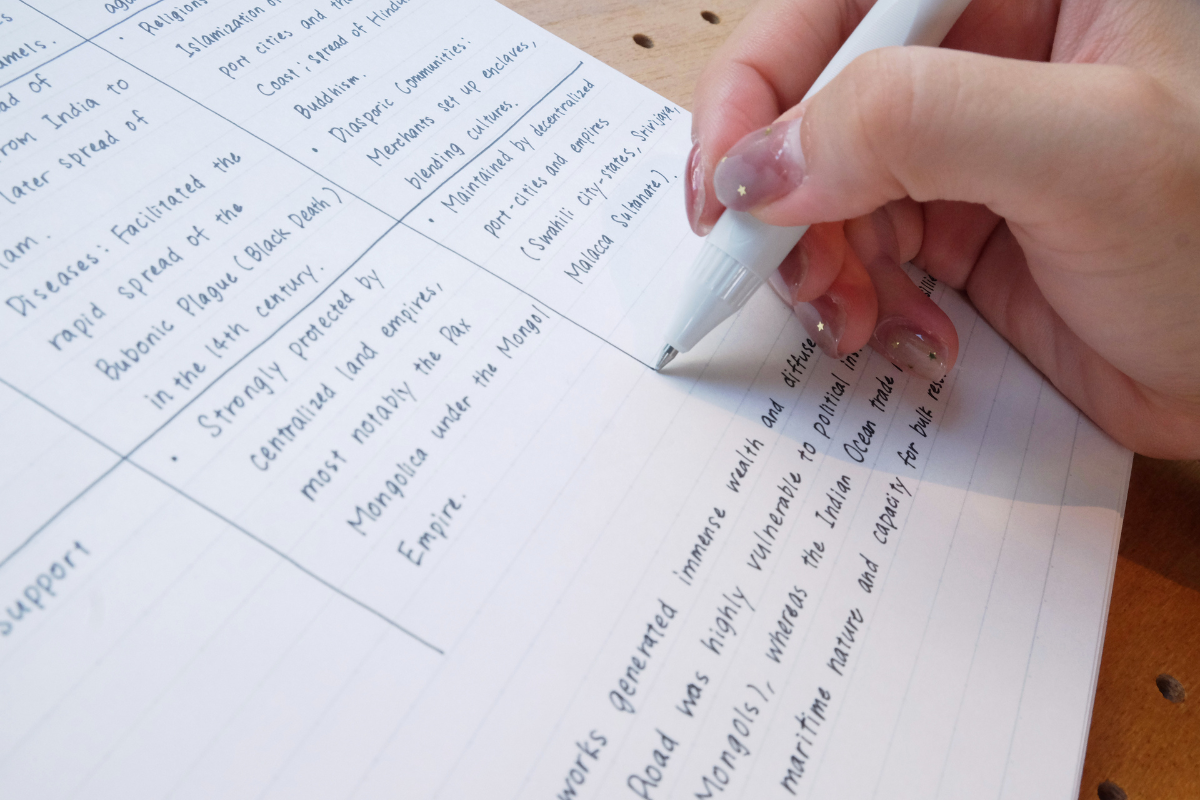 amels.
ad of
rom India to
later spread of
lam.
Diseases: Facilitated the
rapid spread of the
Bubonic Plague (Black Death)
in the 14th century.
• Religions
Islamization of
port cities and the
Coast; spread of Hindu
Buddhism.
• Diasporic Communities:
Merchants set up enclaves,
blending cultures.
support
• Strongly protected by
centralized land empires,
most notably the Pax
Mongolica under the Mongol
Empire.
• Maintained by decentralized
port-cities and empires
(Swahili city-states, Srivijaya,
Malacca Sultanate).
works generated immense wealth and diffuse
Road was highly vulnerable to political
Mongols), whereas the Indian Ocean trade
maritime nature and capacity for bulk